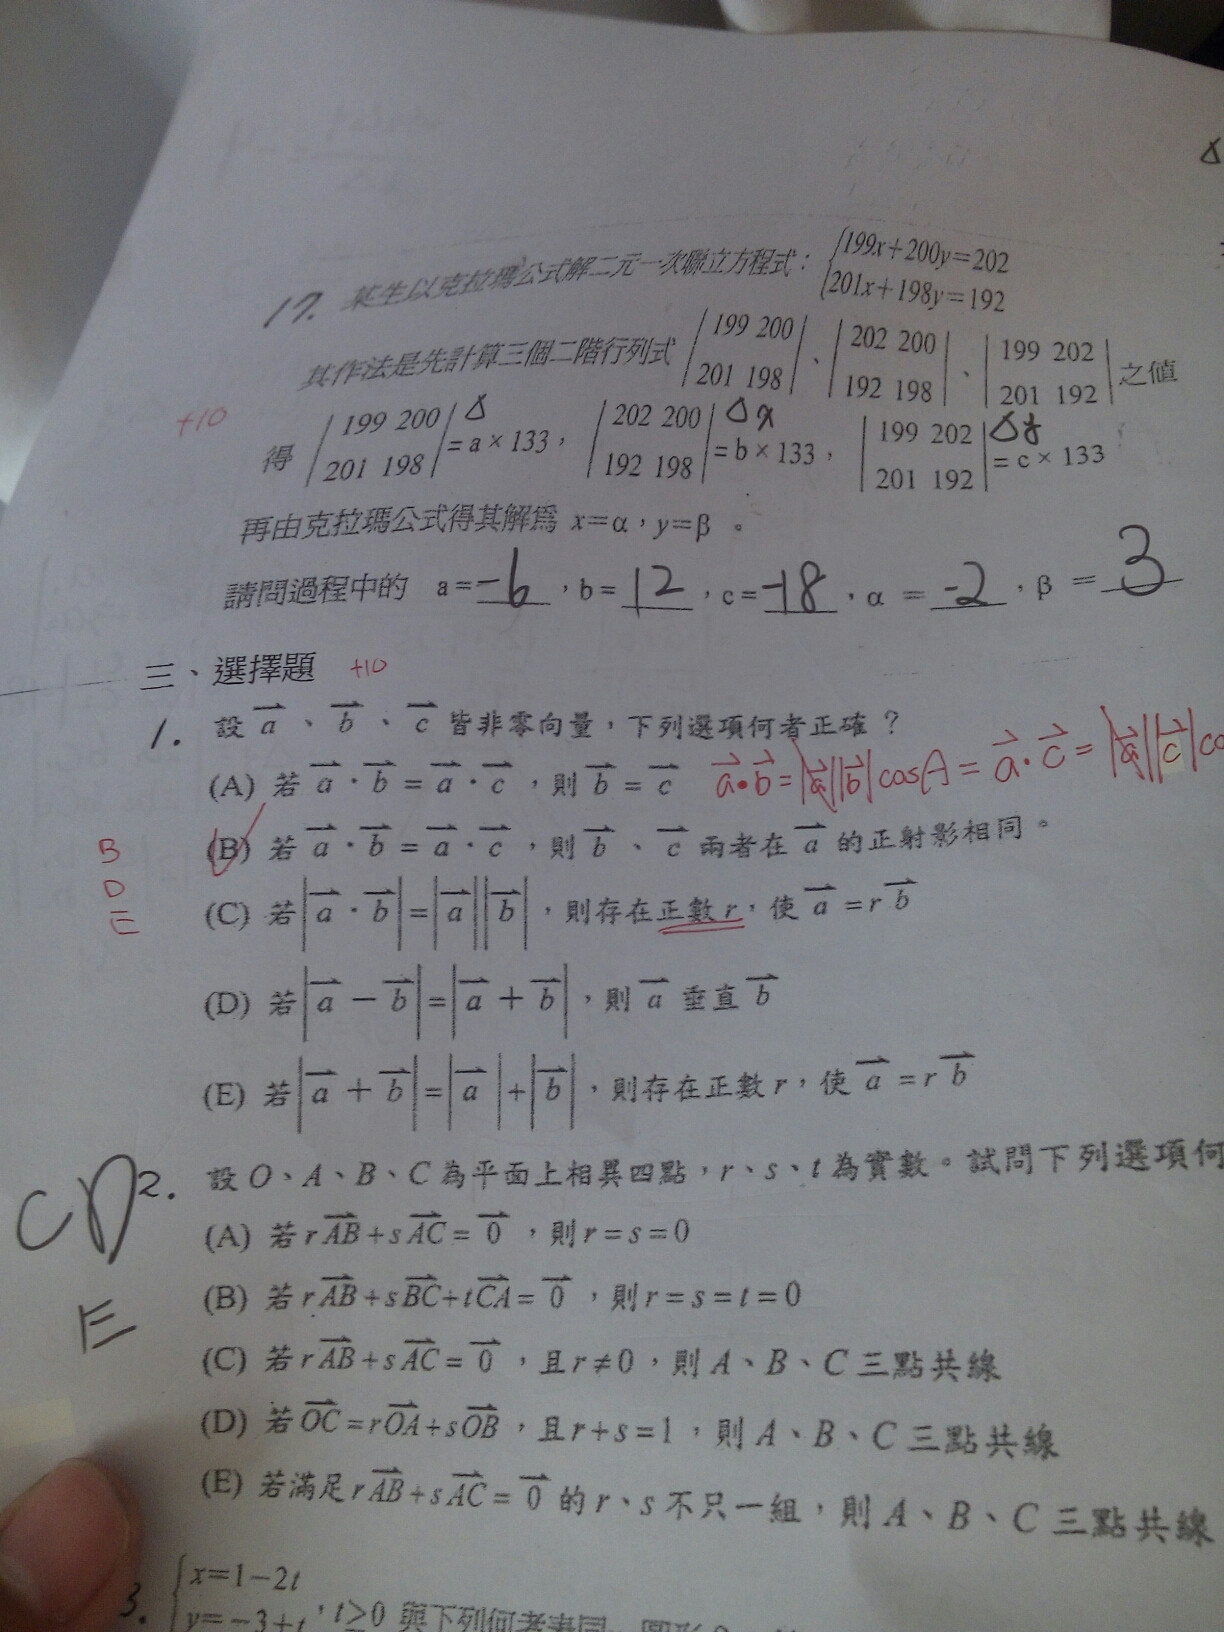 17. 某生以克拉瑪公式解二元一次聯立方程式：{199x+200y=202
201x+198y=192
其作法是先計算三個二階行列式 |199 200
201 198|、|202 200
192 198|、|199 202
201 192| 之值
+10
得 |199 200
201 198| = a × 133，|202 200
192 198| = b × 133，|199 202
201 192| = c × 133
Δ Δx Δy
再由克拉瑪公式得其解為 x=α，y=β。
請問過程中的 a=-6，b=12，c=-18，α=-2，β=3
三、選擇題 +10
1. 設 a⃗、b⃗、c⃗ 皆非零向量，下列選項何者正確？
(A) 若 a⃗·b⃗=a⃗·c⃗，則 b⃗=c⃗ a⃗·b⃗=|a⃗||b⃗|cosA=a⃗·c⃗=|a⃗||c⃗|co
(B) 若 a⃗·b⃗=a⃗·c⃗，則 b⃗、c⃗ 兩者在 a⃗ 的正射影相同。
B
D
E
(C) 若|a⃗·b⃗|=|a⃗||b⃗|，則存在正數 r，使 a⃗=r b⃗
(D) 若|a⃗-b⃗|=|a⃗+b⃗|，則 a⃗ 垂直 b⃗
(E) 若|a⃗+b⃗|=|a⃗|+|b⃗|，則存在正數 r，使 a⃗=r b⃗
CD
E
2. 設 O、A、B、C 為平面上相異四點，r、s、t 為實數。試問下列選項何
(A) 若 rAB⃗+sAC⃗=0⃗，則 r=s=0
(B) 若 rAB⃗+sBC⃗+tCA⃗=0⃗，則 r=s=t=0
(C) 若 rAB⃗+sAC⃗=0⃗，且 r≠0，則 A、B、C 三點共線
(D) 若 OC⃗=rOA⃗+sOB⃗，且 r+s=1，則 A、B、C 三點共線
(E) 若滿足 rAB⃗+sAC⃗=0⃗ 的 r、s 不只一組，則 A、B、C 三點共線
3. {x=1-2t
y=-3+t，t≥0 與下列何者表同一圖形？